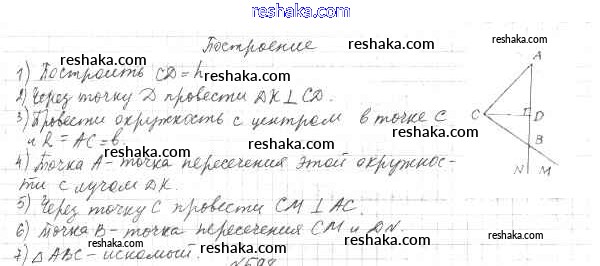 reshaka.com
Построение
1) Построить CD = h.
2) Через точку D провести DK ⊥ CD.
3) Провести окружность с центром в точке C
и R = AC = b.
4) Точка A - точка пересечения этой окружнос-
ти с лучом DK.
5) Через точку C провести CM ⊥ AC.
6) Точка B - точка пересечения CM и DN.
7) △ABC - искомый.
№598
A
C
D
B
N
M
reshaka.com
reshaka.com
reshaka.com
reshaka.com
reshaka.com
reshaka.com
reshaka.com
reshaka.com
reshaka.com
reshaka.com
reshaka.com
reshaka.com